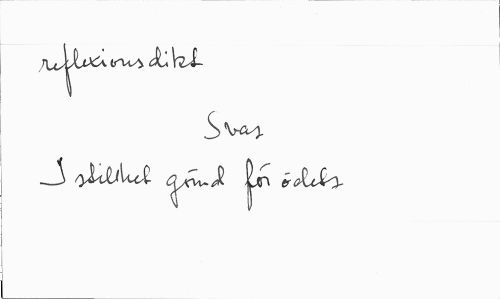 reflexionsdikt
Svar
I stillhet gömd för ödets